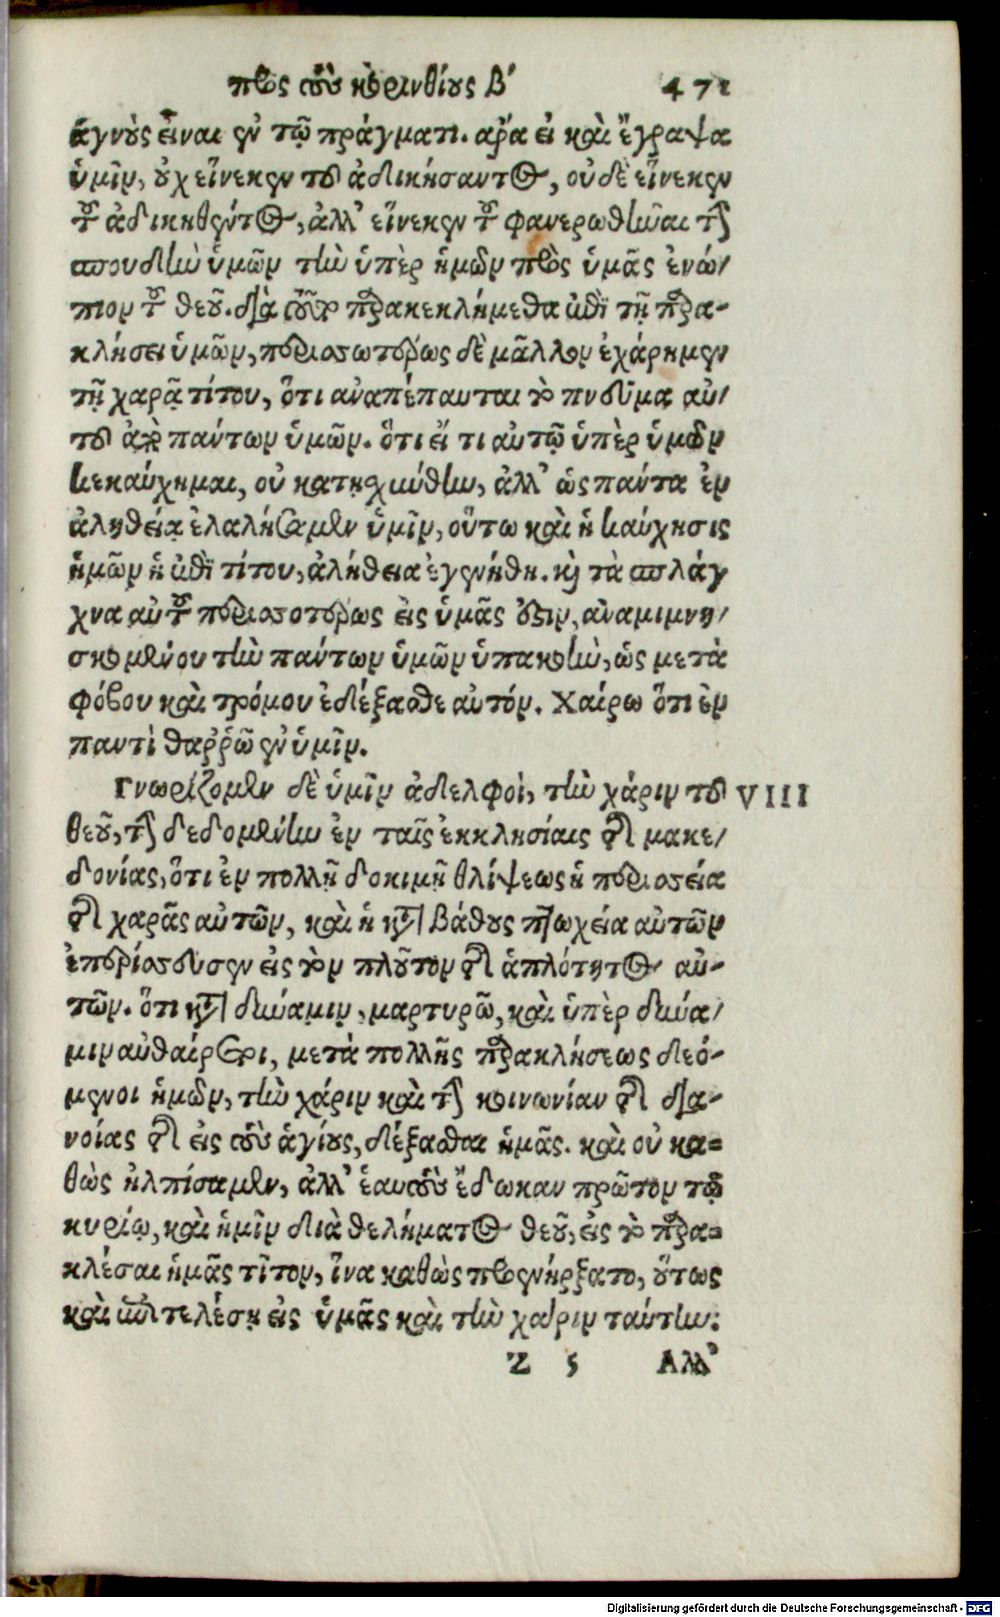 πρὸς τοὺς κορινθίους Β΄ 471
ἁγνοὺς εἶναι ἐν τῷ πράγματι. ἄρα εἰ καὶ ἔγραψα
ὑμῖν, οὐχ εἵνεκεν τοῦ ἀδικήσαντος, οὐδὲ εἵνεκεν
τοῦ ἀδικηθέντος, ἀλλ' εἵνεκεν τοῦ φανερωθῆναι τὴν
σπουδὴν ὑμῶν τὴν ὑπὲρ ἡμῶν πρὸς ὑμᾶς ἐνώ/
πιον τοῦ θεοῦ. διὰ τοῦτο παρακεκλήμεθα ἐπὶ τῇ παρα-
κλήσει ὑμῶν, περισσωτέρως δὲ μᾶλλον ἐχάρημεν
τῇ χαρᾷ τίτου, ὅτι ἀναπέπαυται τὸ πνεῦμα αὐ/
τοῦ ἀπὸ πάντων ὑμῶν. ὅτι εἴ τι αὐτῷ ὑπὲρ ὑμῶν
κεκαύχημαι, οὐ κατῃσχύνθην, ἀλλ' ὡς πάντα ἐν
ἀληθείᾳ ἐλαλήσαμεν ὑμῖν, οὕτω καὶ ἡ καύχησις
ἡμῶν ἡ ἐπὶ τίτου, ἀλήθεια ἐγενήθη. καὶ τὰ σπλάγ
χνα αὐτοῦ περισσοτέρως εἰς ὑμᾶς ἐστιν, ἀναμιμνη/
σκομένου τὴν πάντων ὑμῶν ὑπακοὴν, ὡς μετὰ
φόβου καὶ τρόμου ἐδέξασθε αὐτόν. Χαίρω ὅτι ἐν
παντὶ θαῤῥῶ ἐν ὑμῖν.
Γνωρίζομεν δὲ ὑμῖν ἀδελφοὶ, τὴν χάριν τοῦ VIII
θεοῦ, τὴν δεδομένην ἐν ταῖς ἐκκλησίαις τῆς μακε/
δονίας, ὅτι ἐν πολλῇ δοκιμῇ θλίψεως ἡ περισσεία
τῆς χαρᾶς αὐτῶν, καὶ ἡ κατὰ βάθους πτωχεία αὐτῶν
ἐπερίσσευσεν εἰς τὸν πλοῦτον τῆς ἁπλότητος αὐ-
τῶν. ὅτι κατὰ δύναμιν, μαρτυρῶ, καὶ ὑπὲρ δύνα/
μιν αὐθαίρετοι, μετὰ πολλῆς παρακλήσεως δεό-
μενοι ἡμῶν, τὴν χάριν καὶ τὴν κοινωνίαν τῆς δια-
νοίας τῆς εἰς τοὺς ἁγίους, δέξασθαι ἡμᾶς. καὶ οὐ κα=
θὼς ἠλπίσαμεν, ἀλλ' ἑαυτοὺς ἔδωκαν πρῶτον τῷ
κυρίῳ, καὶ ἡμῖν διὰ θελήματος θεοῦ, εἰς τὸ παρα=
κλέσαι ἡμᾶς τῖτον, ἵνα καθὼς προενήρξατο, οὕτως
καὶ ἐπιτελέσῃ εἰς ὑμᾶς καὶ τὴν χάριν ταύτην.
Z 5 Αλλ'
Digitalisierung gefördert durch die Deutsche Forschungsgemeinschaft - DFG